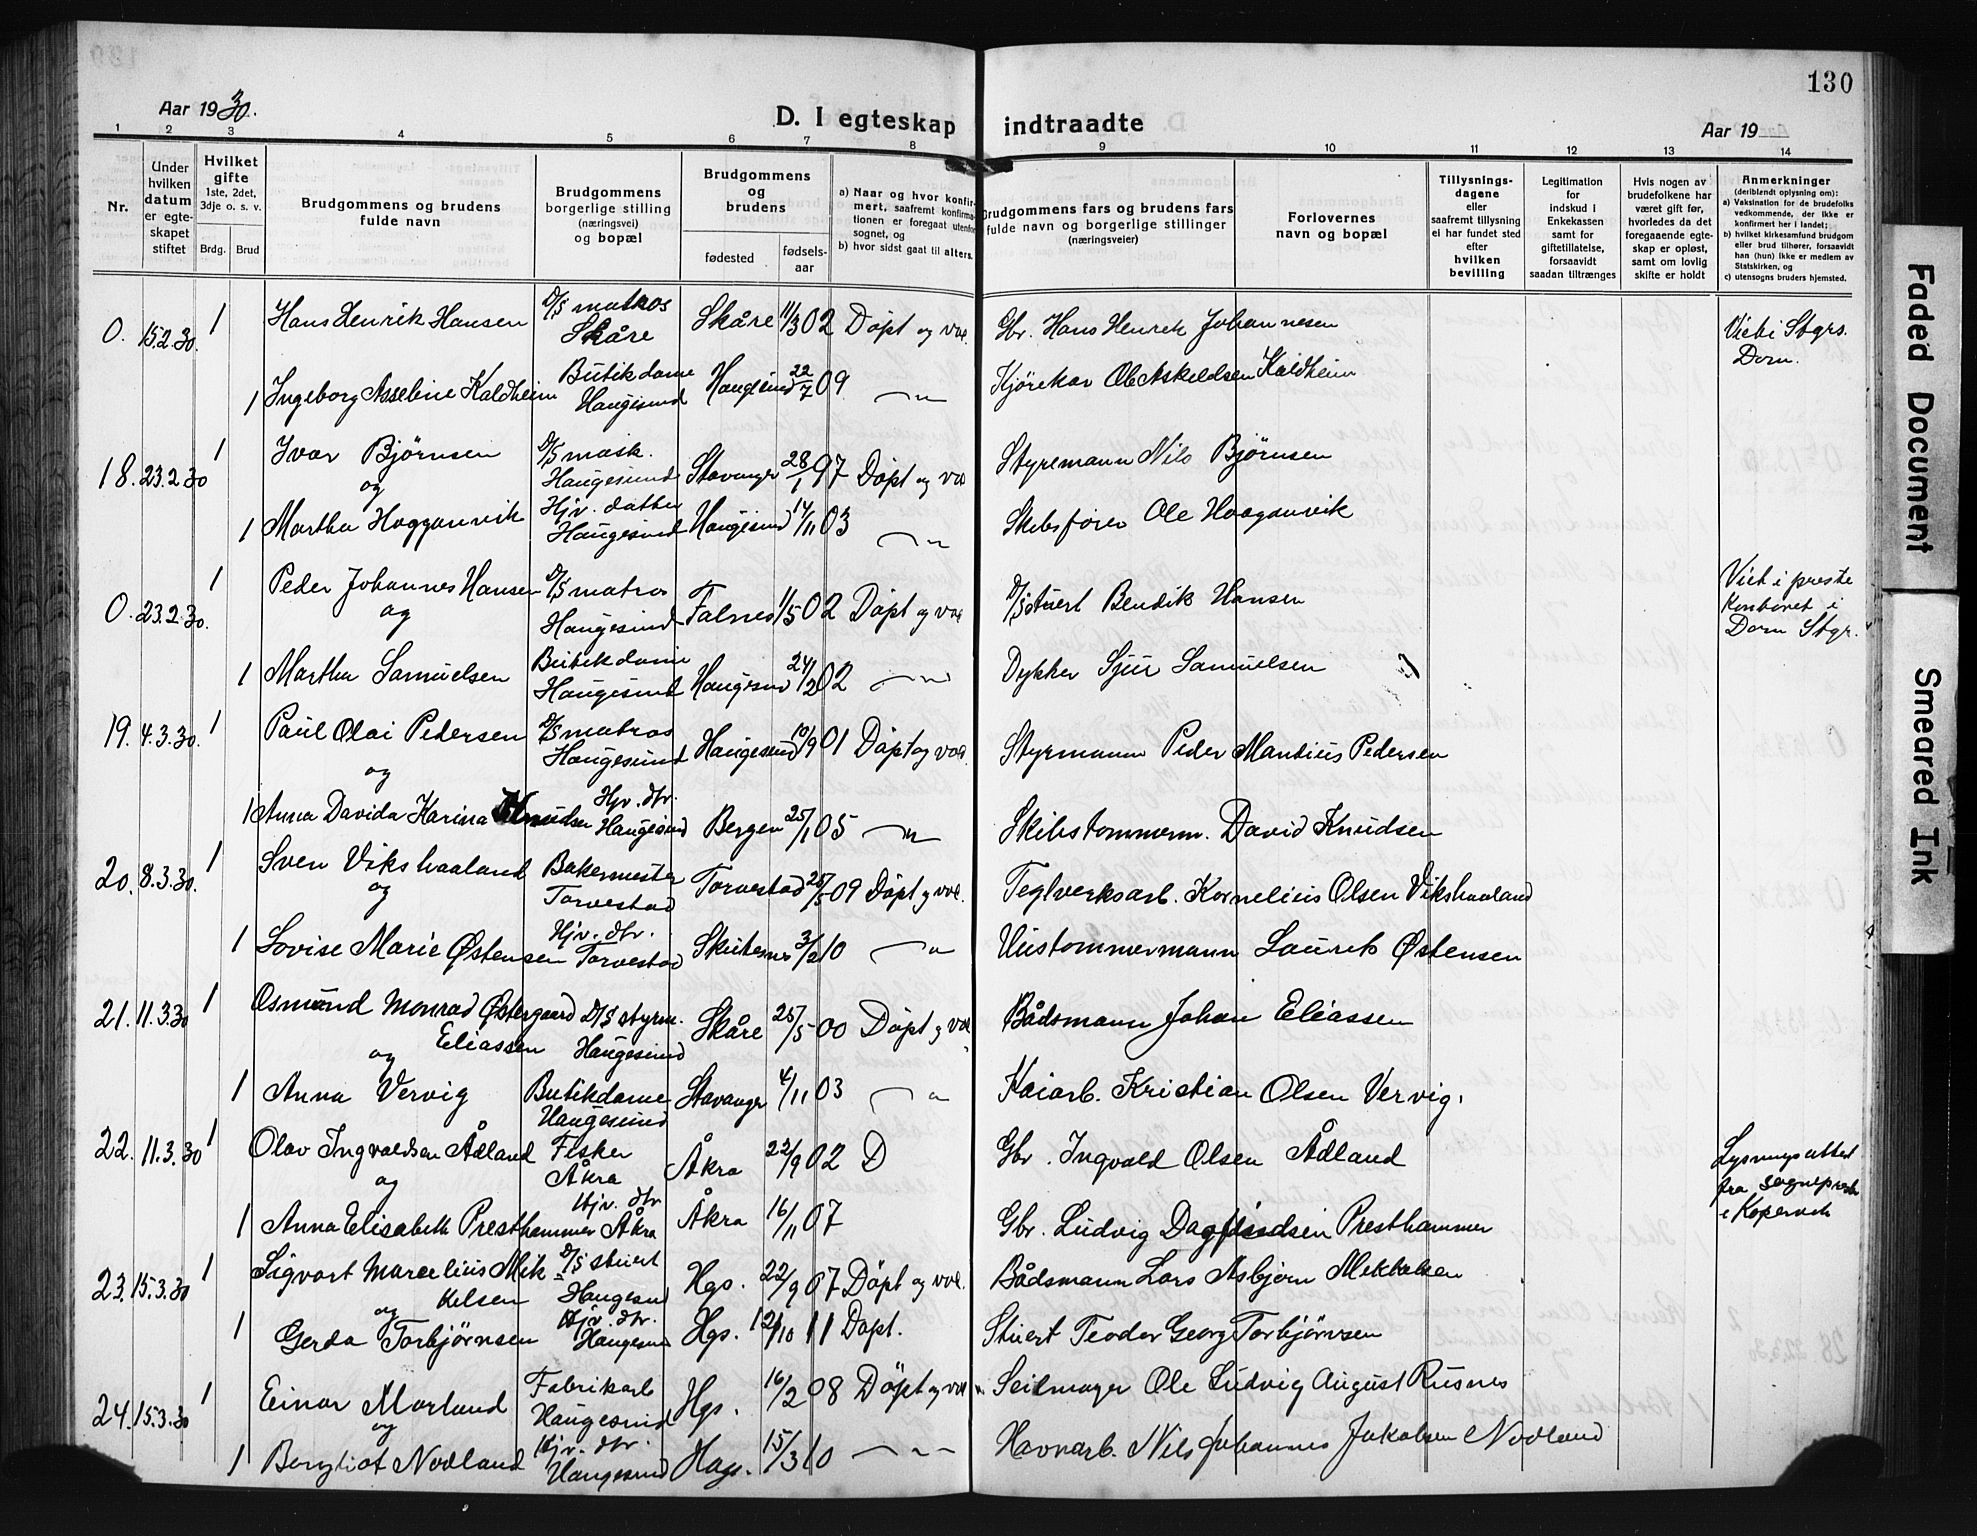 130
Aar 1930.
D. I egteskap indtraadte
Aar 19
1 2 3 4 5 6 7 8 9 10 11 12 13 14
Nr.
Under hvilken datum er egteskapet stiftet
Hvilket gifte
1ste, 2det, 3dje o. s. v.
Brdg. Brud
Brudgommens og brudens fulde navn
Brudgommens borgerlige stilling (næringsvei) og bopæl
Brudgommens og brudens
fødested
fødselsaar
a) Naar og hvor konfirmert, saafremt konfirmationen er foregaat utenfor sognet, og
b) hvor sidst gaat til alters.
Brudgommens fars og brudens fars fulde navn og borgerlige stillinger (næringsveier)
Forlovernes navn og bopæl
Tillysningsdagene eller saafremt tillysning ei har fundet sted efter hvilken bevilling
Legitimation for indskud i Enkekassen samt for giftetillatelse, forsaavidt saadan tiltrænges
Hvis nogen av brudefolkene har været gift før, hvorledes da det foregaaende egteskap er opløst, samt om lovlig skifte er holdt
Anmerkninger (deriblendt oplysning om):
a) Vaksination for de brudefolks vedkommende, der ikke er konfirmert her i landet;
b) hvilket kirkesamfund brudgom eller brud tilhører, forsaavidt han (hun) ikke er medlem av Statskirken, og
c) utensogns bruders hjemsted.
0. 15.2.30. 1 Hans Henrik Hansen D/S matros Skåre Skåre 11/3 02 Döpt og vac. Gbr. Hans Henrik Johannesen Viet i Stgrs. Dom.
1 Ingeborg Asseline Kaldheim Butikdame Haugesund Haugesund 22/7 09 —"— Kjörekar Ole Askeldsen Kaldheim
18. 23.2.30 1 Ivar Bjørnsen og D/S mask. Haugesund Stavanger 28/1 97 Döpt og vac Styremann Nils Bjørnsen
1 Martha Hagganvik Hjv. datter Haugesund Haugesund 14/11 03 —"— Skibsfører Ole Haaganvik
0. 23.2.30. 1 Peder Johannes Hansen og D/S matros Haugesund Falnes 1/5 02 Döpt og vac D/S stuert Bendik Hansen Viet i preste kontoret i Dom Stgr.
1 Martha Samuelsen Butikdame Haugesund Haugesund 24/2 02 —"— Dykker Sjur Samuelsen
19. 4.3.30. 1 Paul Olai Pedersen og D/S matros Haugesund Haugesund 10/9 01 Döpt og vac. Styrmann Peder Mandius Pedersen
1 Anna Davida Karina Knudsen Hjv. dtr. Haugesund Bergen 25/1 05 —"— Skibstömmerm. David Knudsen
20. 8.3.30. 1 Sven Vikshaaland og Bakermester Torvestad Torvestad 25/5 09 Döpt og vac. Teglverksarb. Kornelius Olsen Vikshaaland
1 Lovise Marie Østensen Hjv. dtr. Torvestad Skutesnes 3/2 10 —"— Hustømmermann Laurits Østensen
21. 11.3.30 1 Osmund Monrad Østergaard Eliassen og D/S styrm. Haugesund Skåre 25/5 00 Döpt og vac Bådsmann Johan Eliassen
1 Anna Vervig Butikdame Haugesund Stavanger 4/11 03 —"— Kaiarb. Kristian Olsen Vervig.
22. 11.3.30 1 Olav Ingvaldsen Ådland og Fisker Åkra Åkra 22/9 02 D Gbr. Ingvald Olsen Ådland Lysningsattest fra sogneprest i Kopervik
1 Anna Elisabeth Presthammer Hjv. dtr Åkra Åkra 16/11 07 Gbr. Ludvig Dagfindsen Presthammer
23. 15.3.30 1 Sigvart Marcelius Mikkelsen og D/S stuert Haugesund Hgs. 22/9 07 Döpt og vac. Bådsmann Lars Asbjørn Mikkelsen
1 Gerda Torbjørnsen Hjv. dtr. Haugesun Hgs. 12/10 11 Döpt. Stuert Teodor Georg Torbjørnsen
24. 15.3.30 1 Einar Morland og Fabrikarb Haugesund Hgs. 16/2 08 Döpt og vac Seilmager Ole Ludvig August Rusnes
1 Borghot Nodland Hjv. dtr. Haugesund Hags. 15/3 10 —"— Havnarb. Nils Johannes Jakobsen Nodland
Faded Document
Smeared Ink